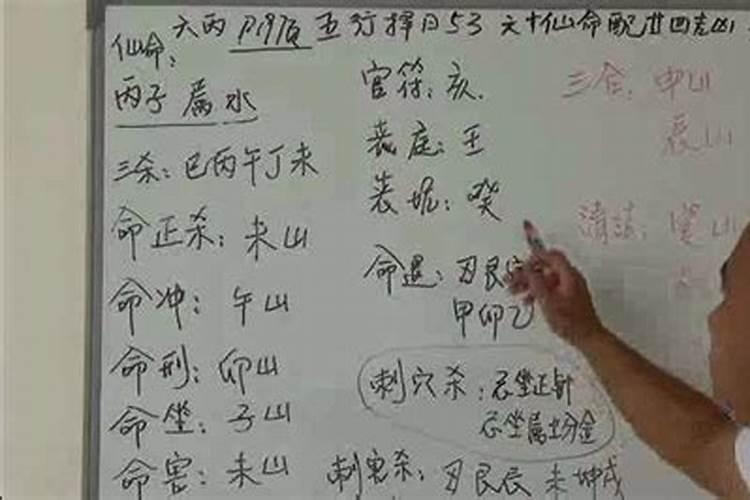 六丙 阴阳 五行择日53 六十仙命配廿四吉凶
仙命:
丙子 属水
三杀: 巳丙午丁未
命正杀: 未山
命冲: 午山
命刑: 卯山
命坐: 子山
命害: 未山
官符: 亥.
丧庭: 壬
丧堀: 癸
命退: 丑艮
甲卯乙
刺穴杀: 忌坐正针
忌坐属土分金
刺害杀: 丑艮辰 未坤戌
三合: 申山
辰山